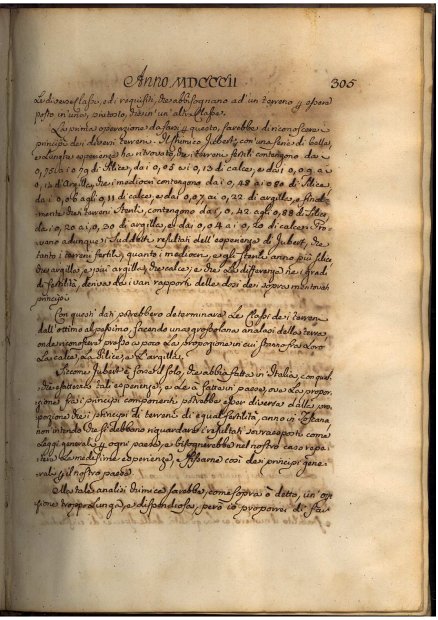 Anno MDCCCII 305
Le diverse Classe, e di requisiti, che abbisognano ad' un terreno p essere
posto in' uno, piutosto, che in' un' altra Classe.
La prima operazione da farsi p questo, sarebbe di riconoscere i
principi dei diversi terreni. Il chimico Jubert, con' una serie di belle,
e Lunghe esperienze ha ritrovato, che i terreni fertili contengono da
0,75 ai 0,79 di Silice, da i 0,05 ai 0,13 di calce, e da i 0,09 ai
0,13 di Argilla, che i mediocri contengono da i 0,48 ai 0,80 di Silice,
da i 0,06 agli 0,11 di calce, e da i 0,07 ai 0,22 di argilla, e final-
mente che i terreni Sterili contengono da i 0,42 agli 0,88 di Silice,
da i 0,20 ai 0,30 di argilla, e da i 0,04 ai 0,20 di calce. Tro-
vano adunque i Suddetti resultati dell' esperienze di Jubert, che
tanto i terreni fertili, quanto i mediocri, e gli Sterili anno più silice
che argilla, e più argilla, che calce, e che la differenza ne i gradi
di fertilità, deriva dei vari rapporti delle dosi dei sopra mentovati
principi.
Con questi dati potrebbero determinarsi Le Classi dei terreni
dall' ottimo al pessimo, facendo una grossolana analisi della terra
onde riconoscere presso a poco La proporzione in cui stanno fra Loro
La calce, La Silice, e L'argilla.
Siccome Jubert è forse il solo, che abbia fatta in Italia, con qual-
che esattezza tali esperienze, e Le à fatte in' paese, ove La propor-
zione fra i principi componenti potrebbe esser diversa dalla pro-
porzione che i principi di terreni di egual fertilità, anno in Toscana,
non intendo che si debbono riguardare i resultati sovraesposti come
Leggi generali p ogni paese, e bisognerebbe nel nostro caso repe-
tere Le medesime esperienze, e fissarne così dei principi gene-
rali p il nostro paese.
Ma tale analisi chimica sarebbe, come sopra ò detto, un' ope-
razione troppo Lunga, e dispendiosa, però io proporrei di far